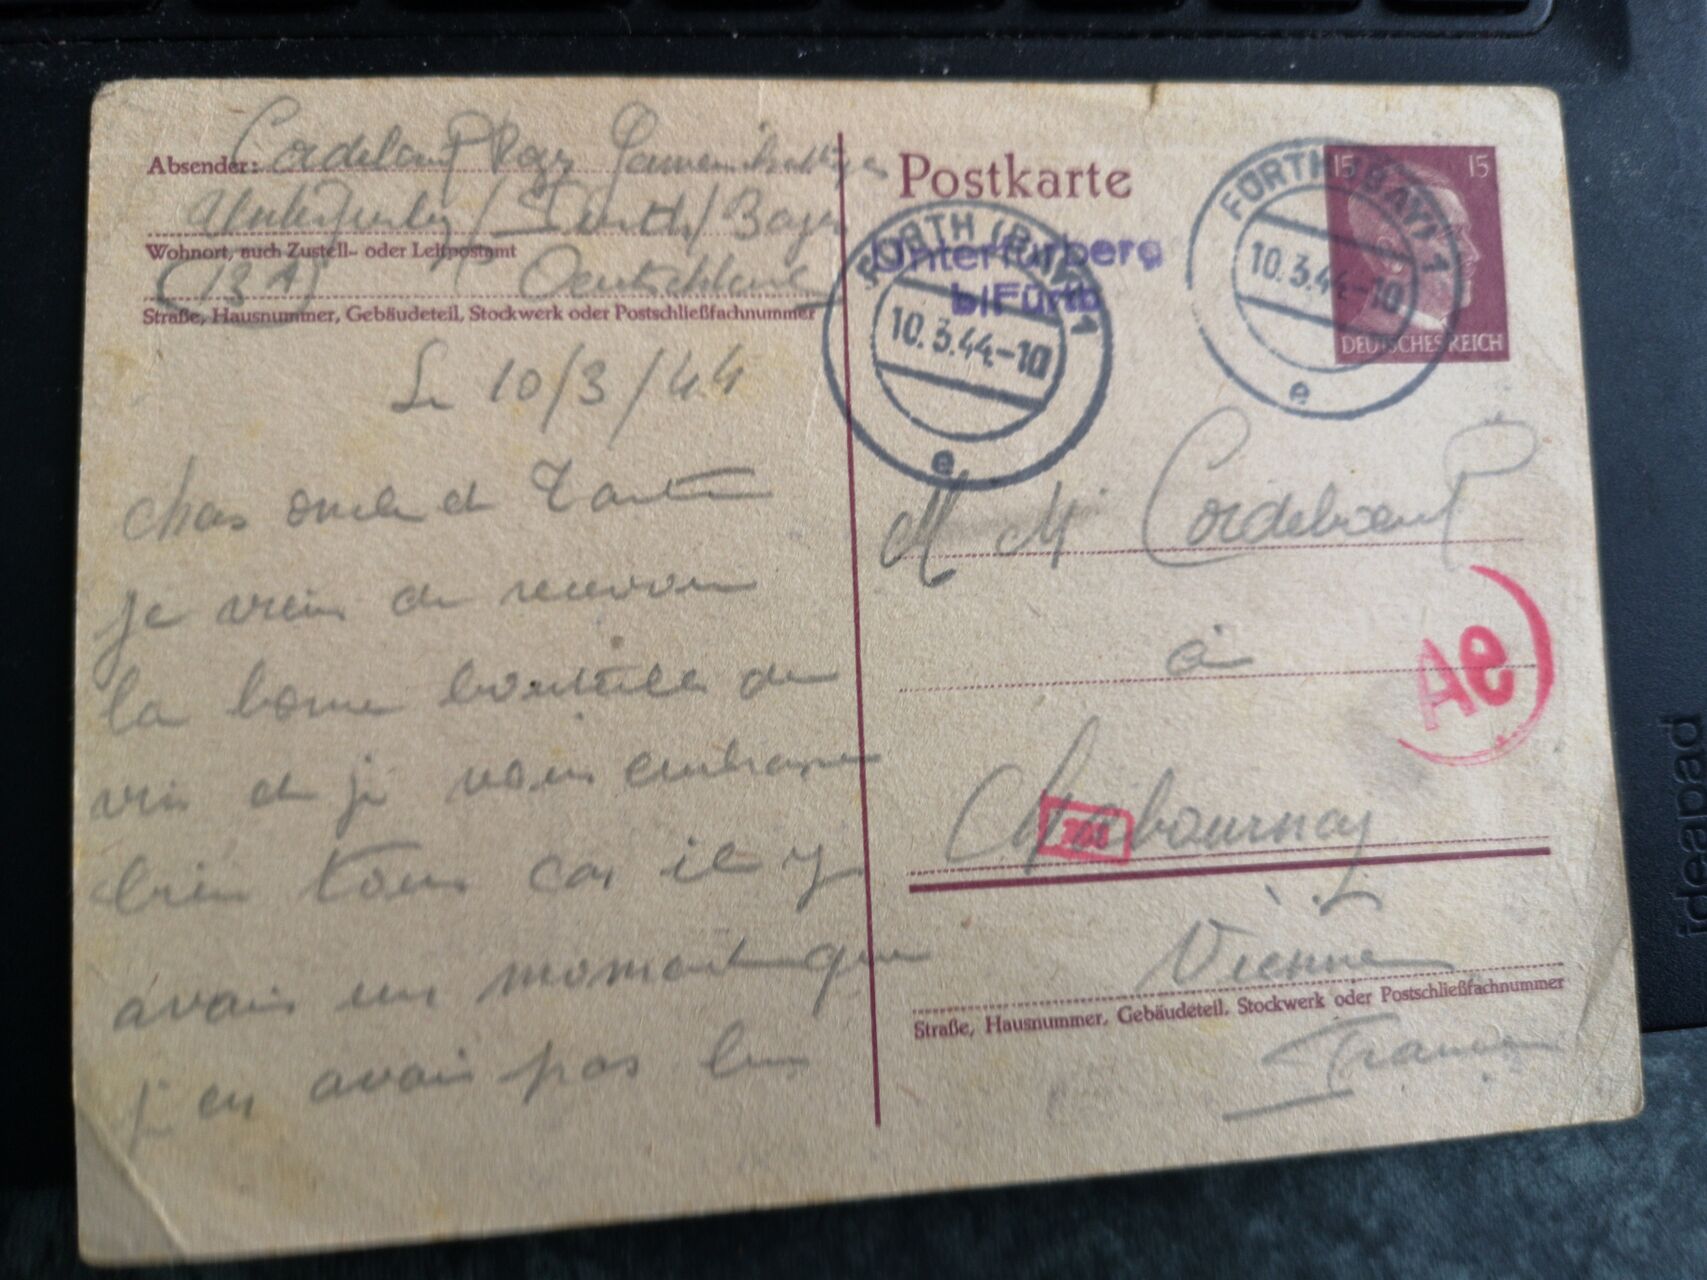 Absender: Cordebœuf
Unterfürberg / Fürth / Bayern
Wohnort, auch Zustell- oder Leitpostamt
(13A) Deutschland
Straße, Hausnummer, Gebäudeteil, Stockwerk oder Postschließfachnummer
Le 10/3/44
chers oncle et Tante
je viens de recevoir
la bonne bouteille de
vin et je vous embrasse
bien tous car il y
avais un moment que
j en avais pas bu
Postkarte
Unterfürberg
b/Fürth
FÜRTH (BAY) 1
10.3.44.-10
e
FÜRTH (BAY) 1
10.3.44.-10
e
15 15
DEUTSCHES REICH
M M Cordebœuf
à
Ae
Chabournay
Vienne
Straße, Hausnummer, Gebäudeteil, Stockwerk oder Postschließfachnummer
France
ideapad